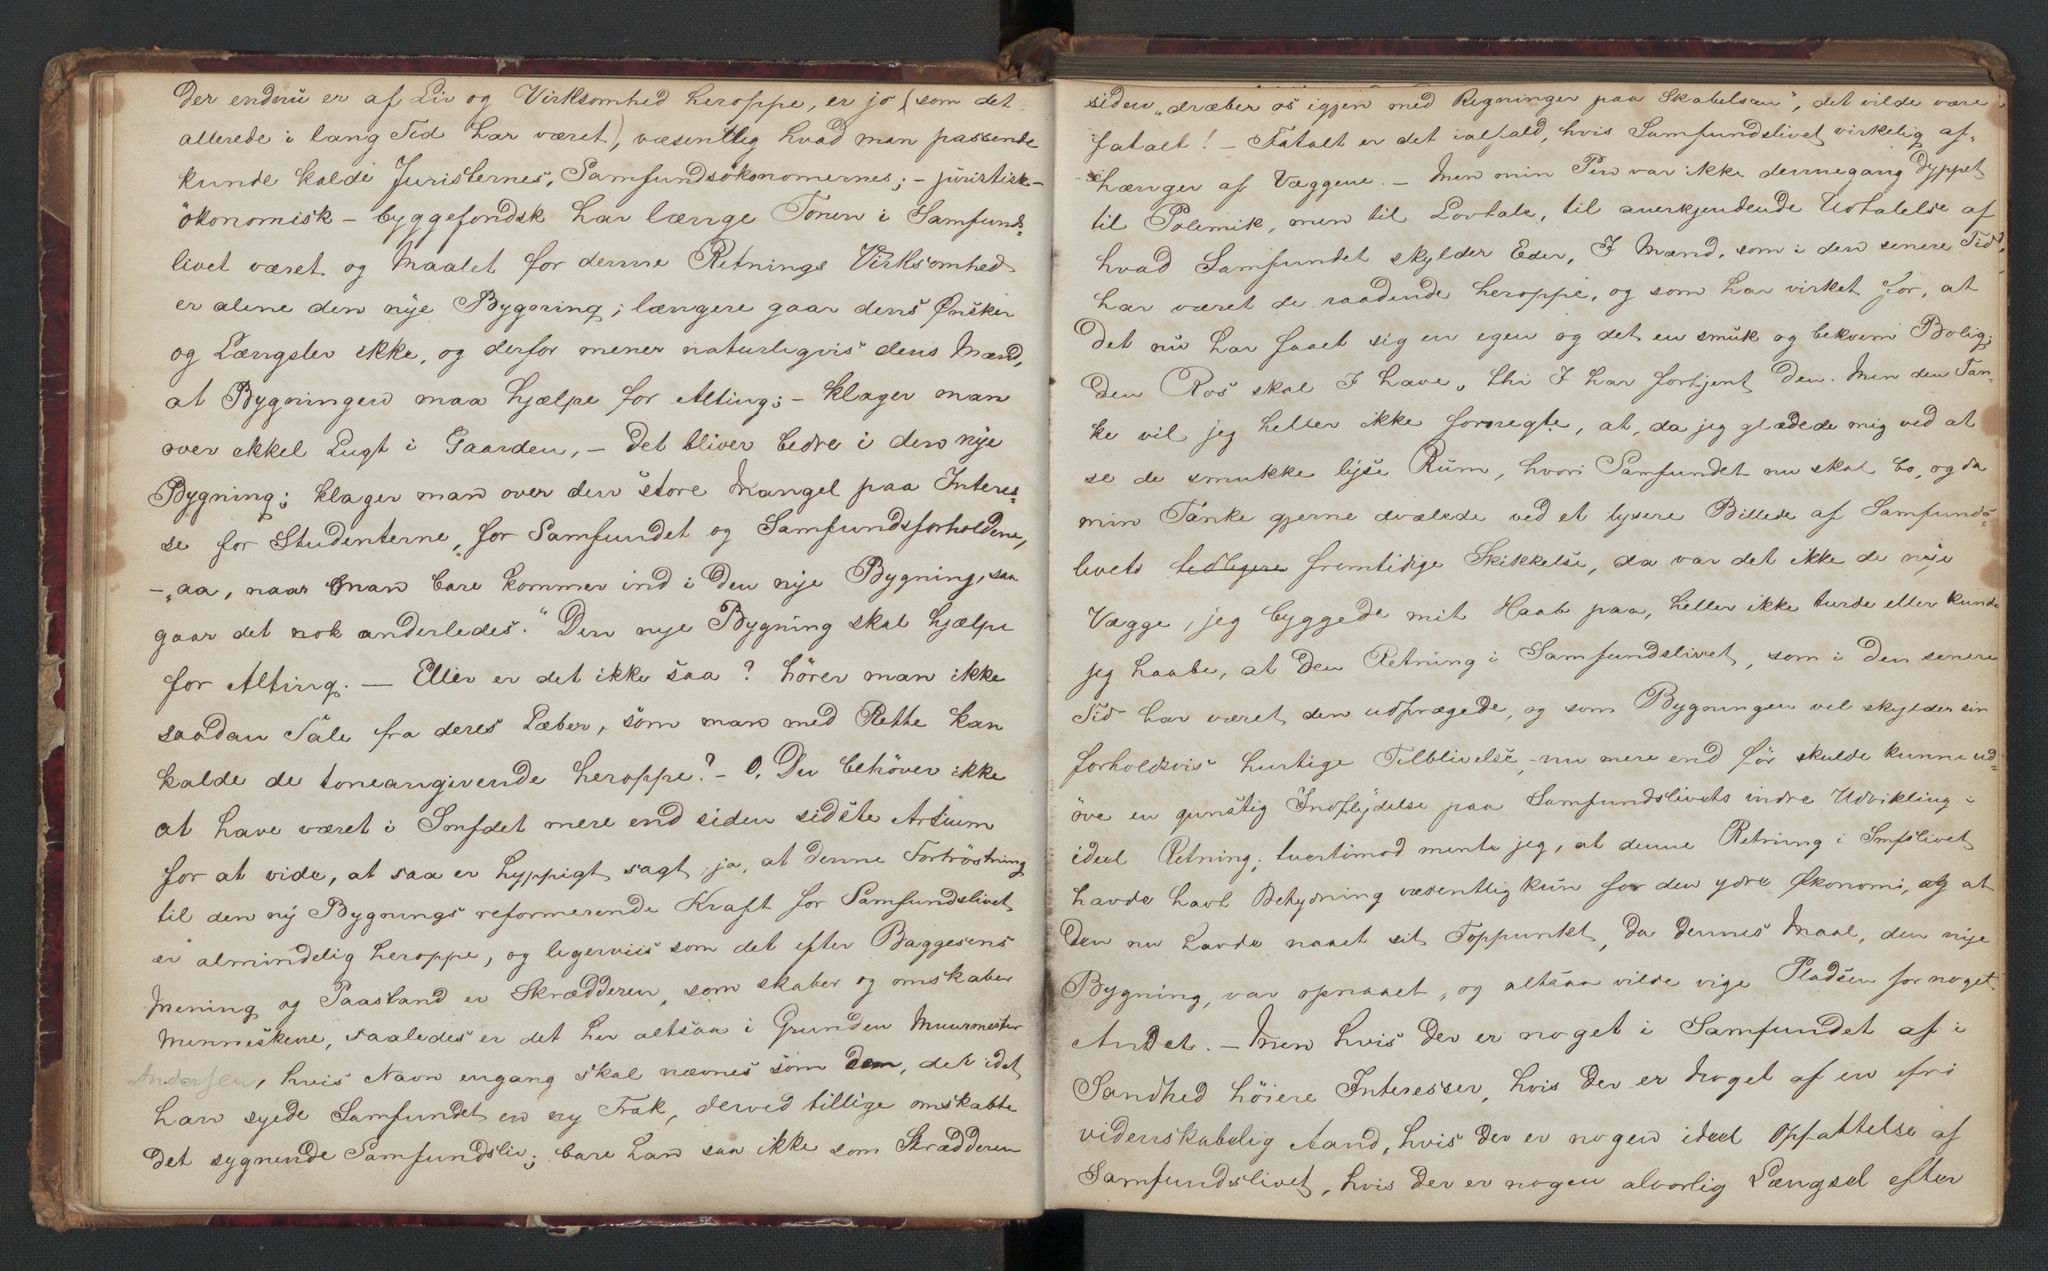 der endnu er af Liv og Virksomhed heroppe, er jo (som det
allerede i lang Tid har været), væsentlig hvad man passende
kunde kalde Juristernes, Samfundsökonomernes; – juristisk –
ökonomisk – byggefondsk har længe Tonen i Samfunds-
livet været og Maalet for denne Retnings Virksomhed
er alene den nye Bygning; længere gaar dens Ønsker
og Længsler ikke, og derfor mener naturligvis dens Mænd,
at Bygningen maa hjælpe for Alting; – klager man
over ekkel Lugt i Gaarden, – det bliver bedre i den nye
Bygning; klager man over den store Mangel paa Interes-
se for Studenterne, for Samfundet og Samfundsforholdene,
– „aa, naar man bare kommer ind i den nye Bygning, saa
gaar det nok anderledes." Den nye Bygning skal hjælpe
for Alting. – Eller er det ikke saa? hører man ikke
saadan Tale fra deres Læber, som man med Rette kan
kalde de toneangivende heroppe? – O, Du behöver ikke
at have været i Smfdet mere end siden sidste Artium
for at vide, at saa er hyppigt sagt, ja, at denne Fortröstning
til den ny Bygnings reformerende Kraft for Samfundslivet
er almindelig heroppe, og ligerviis som det efter Baggesens
Mening og Paastand er Skrædderen, som skaber og omskaber
Menneskene, saaledes er det her altsaa i Grunden Muurmester
Andersen, hvis Navn engang skal nævnes som den, der idet
han syede Samfundet en ny Frak, derved tillige omskabte
det sygnende Samfundsliv; bare han saa ikke som Skrædderen
siden „dræber os igjen med Regninger paa Skabelsen", det vilde være
fatalt! – Fatalt er det ialfald, hvis Samfundslivet virkelig af-
hænger af Væggene. – Men min Pen var ikke dennegang dyppet
til Polemik, men til Lovtale, til anerkjendende Udtalelse af
hvad Samfundet skylder Eder, I Mænd, som i den senere Tid
har været de raadende heroppe, og som har virket for, at
det nu har faaet sig en egen og det en smuk og bekvem Bolig;
den Ros skal I have, thi I har fortjent den. Men den Tan-
ke vil jeg heller ikke fornegte, at, da jeg glædede mig ved at
se de smukke lyse Rum, hvori Samfundet nu skal bo, og da
min Tanke gjerne dvælede ved et lysere Billede af Samfunds-
livets fremtidige Skikkelse, da var det ikke de nye
Vægge, jeg byggede mit Haab paa, heller ikke turde eller kunde
jeg haabe, at den Retning i Samfundslivet, som i den senere
Tid har været den udprægede, og som Bygningen vel skylder sin
forholdsvis hurtige Tilblivelse, – nu mere end før skulde kunne ud-
öve en gunstig Indflydelse paa Samfundslivets indre Udvikling i
ideel Retning; tvertimod mente jeg, at denne Retning i Smfslivet
havde havt Betydning væsentlig kun for den ydre Økonomi, og at
den nu havde naaet sit Toppunkt, da dennes Maal, den nye
Bygning, var opnaaet, og altsaa vilde vige Pladsen for noget
Andet. – Men hvis der er noget i Samfundet af i
Sandhed höiere Interesser, hvis der er Noget af en fri
videnskabelig Aand, hvis der er nogen ideel Opfattelse af
Samfundslivet, hvis der er nogen alvorlig Længsel efter